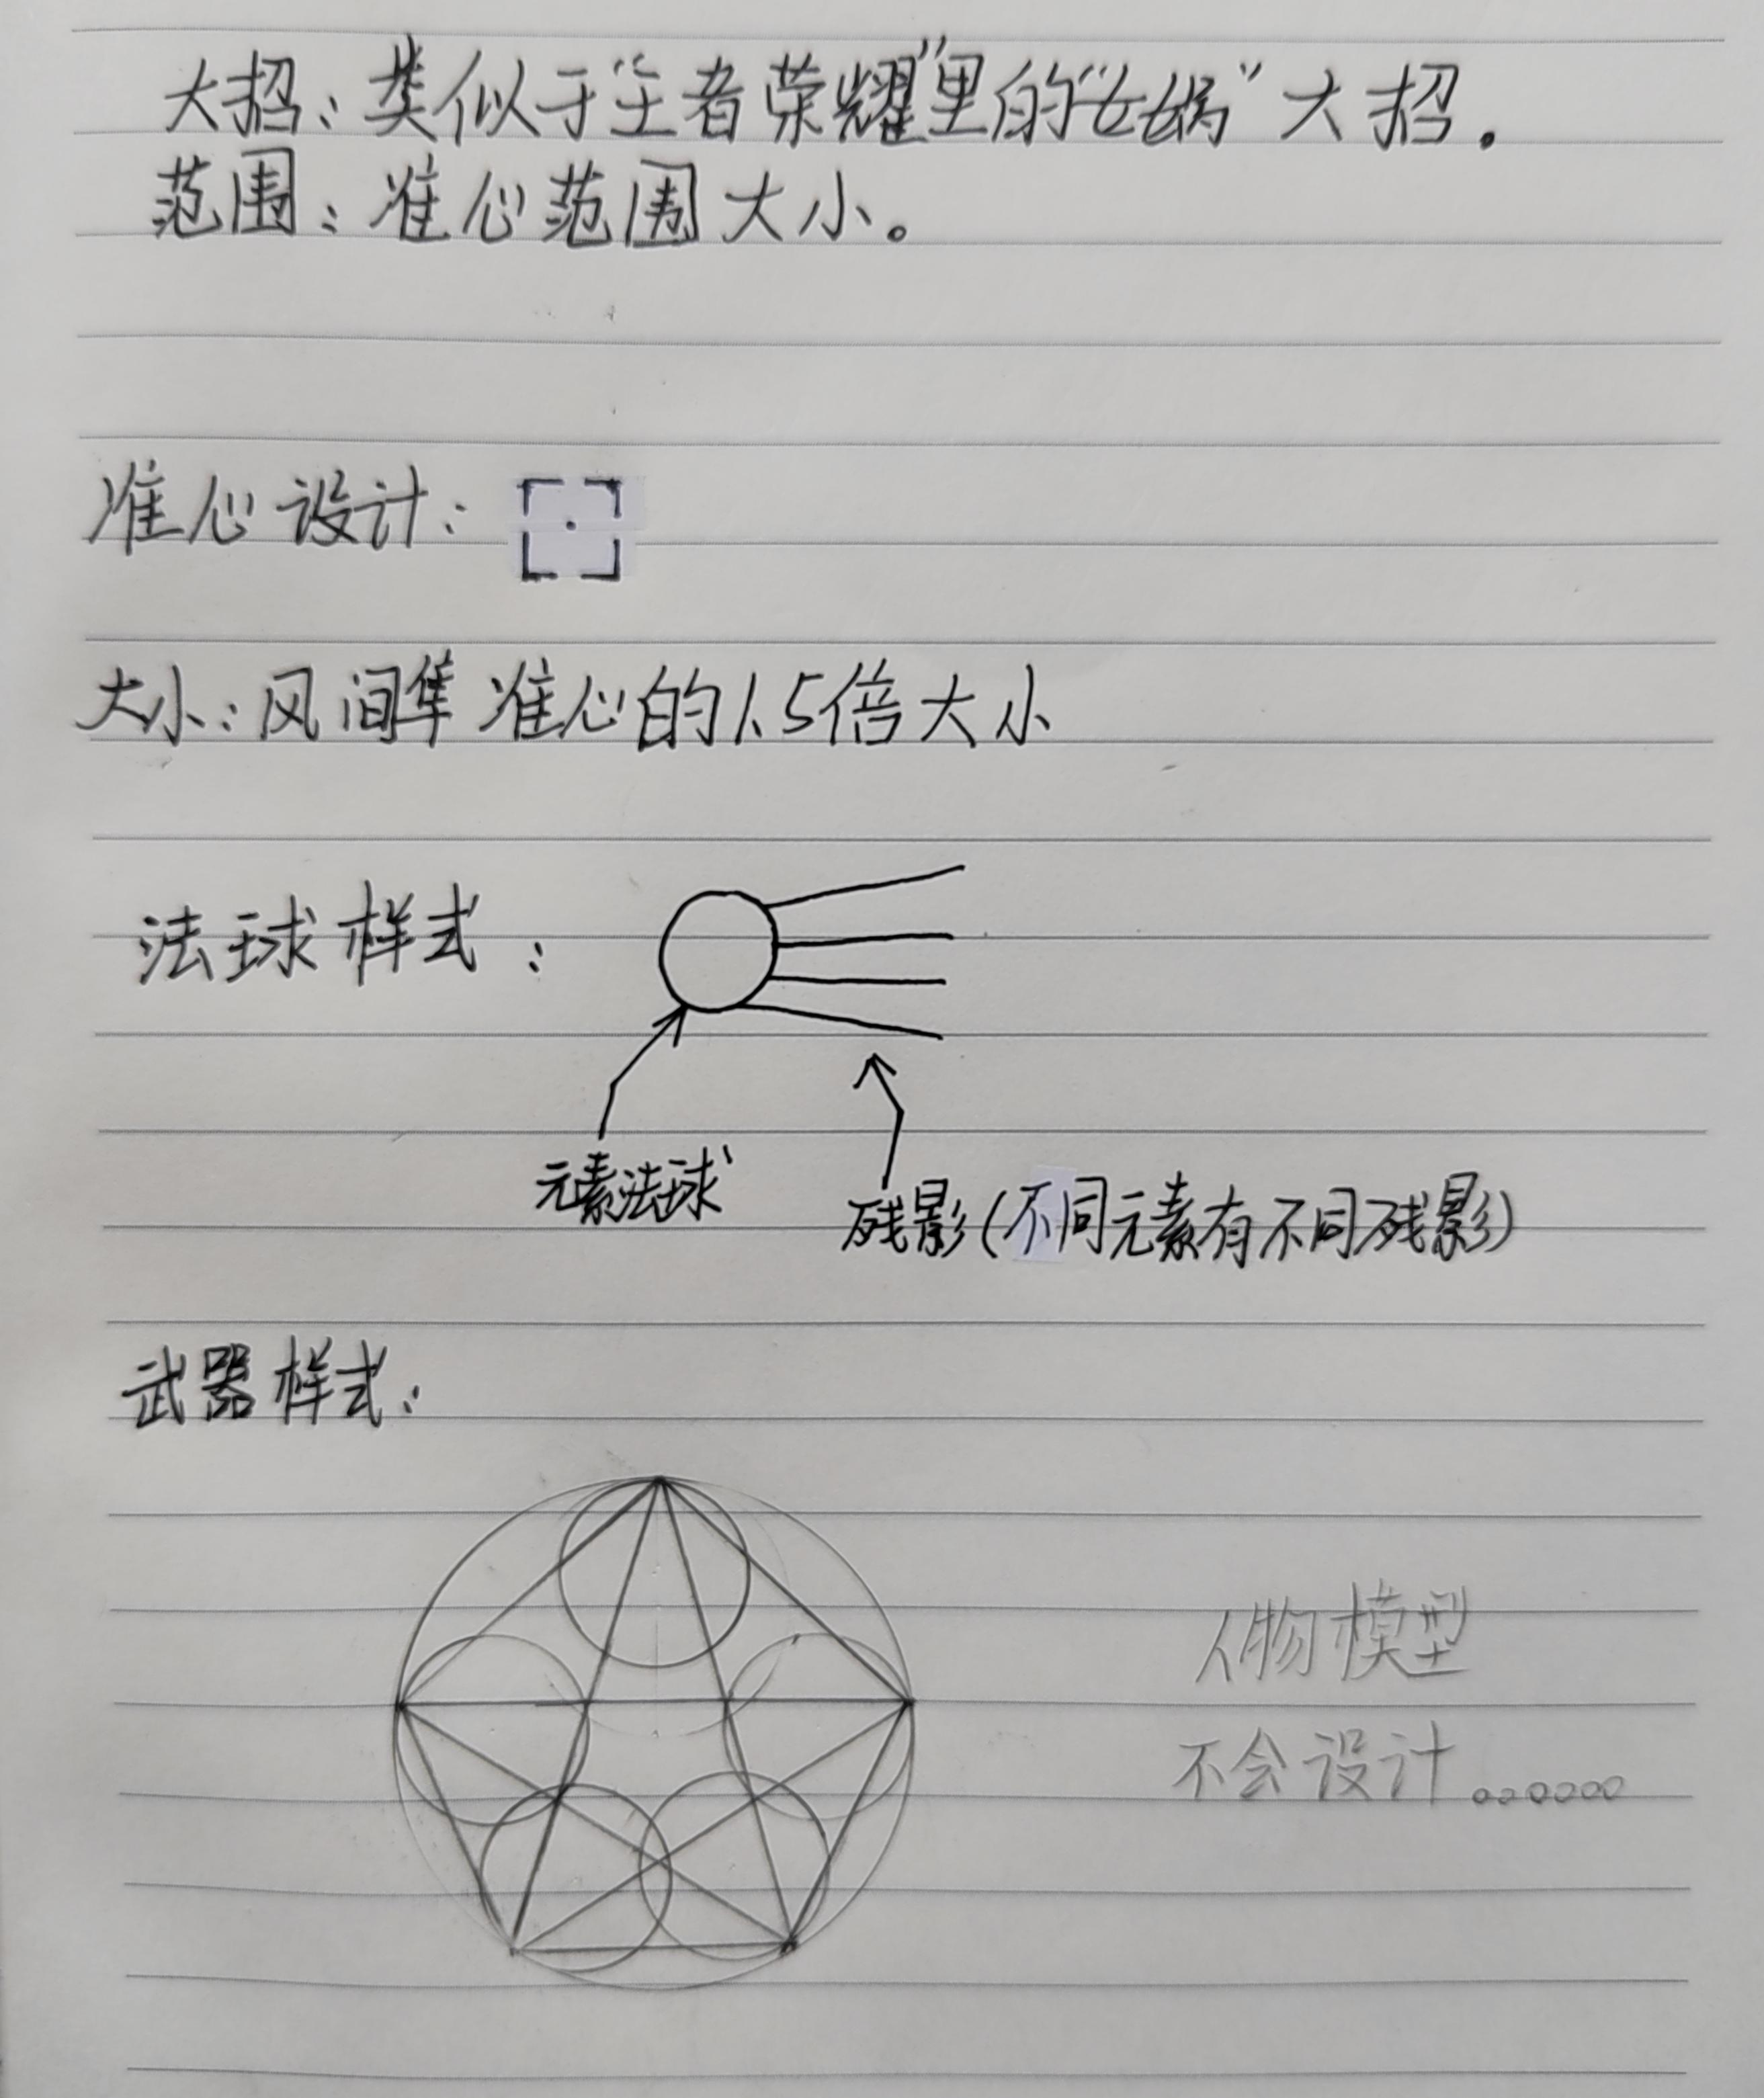 大招：类似于“王者荣耀”里的“女娲”大招.
范围：准心范围大小。
准心设计：
大小：风间隼 准心的1.5倍大小
法球样式：
元素法球
残影(不同元素有不同残影)
武器样式：
人物模型
不会设计。。。。。。